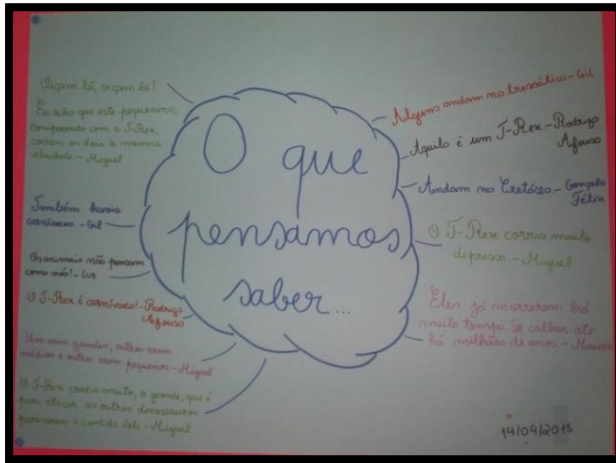 O que
pensamos
saber...
Oiçam lá, oiçam lá!
Eu acho que este pequenino,
comparando com o T-Rex,
correm os dois à mesma
velocidade - Miguel
Também havia
carnívoros. - Gil
Os animais não pensam
como nós! - Luz
O T-Rex é carnívoro! - Rodrigo
Afonso
Uns eram grandes, outros eram
médios e outros eram pequenos - Miguel
O T-Rex corria muito, o grande, que é
para atacar os outros dinossauros
para serem a comida dele - Miguel
Alguns andam no triassático - Gil
Aquilo é um T-Rex - Rodrigo
Afonso
Andam no Cretáceo - Gonçalo
Félix
O T-Rex corria muito
depressa - Miguel
Eles já morreram há
muito tempo. Se calhar até
há milhão de anos -
14/04/2015